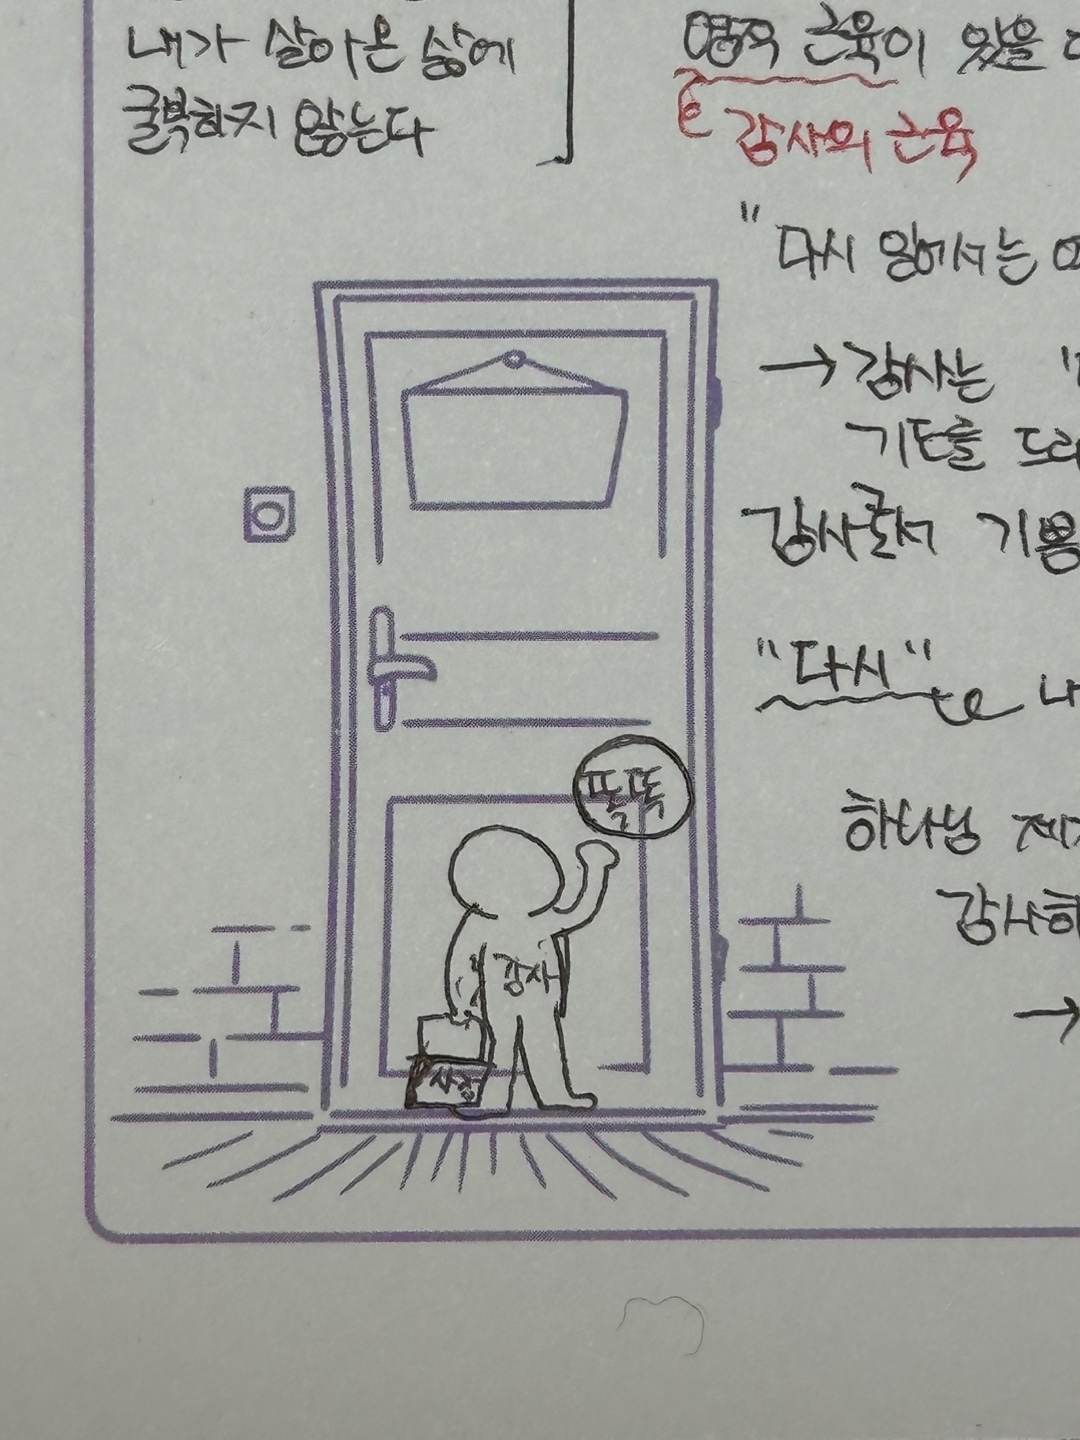 내가 살아온 삶에
굴복하지 않는다
영적 근육이 있을
감사의 근육
"다시 일어서는
→ 감사는
기도를 드리
감사로서 기용
"다시"
하나님
감사하
→
똑똑
감사